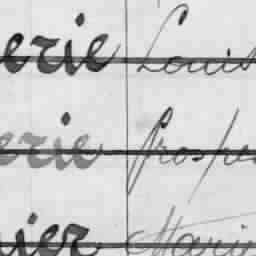 erie Louis
erie Prosper
ier Marie